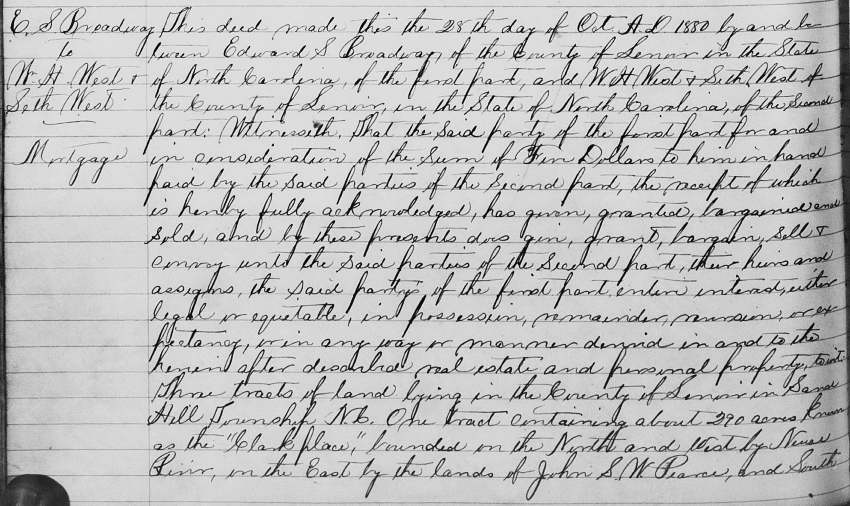 E. S Broadway
to
W. H. West &
Seth West
Mortgage
This deed made this the 28th day of Oct. A.D. 1880 by and be
tween Edward S Broadway, of the County of Lenoir in the State
of North Carolina, of the first part, and W H West & Seth West of
the County of Lenoir, in the State of North Carolina, of the Second
part: Witnesseth, That the said party of the first part for and
in consideration of the Sum of Ten Dollars to him in hand
paid by the said parties of the second part, the receipt of which
is hereby fully acknowledged, has given, granted, bargained and
sold, and by these presents does give, grant, bargain, sell &
convey unto the said parties of the second part, their heirs and
assigns, the said partys of the first part entire interest, either
legal or equitable, in possession, remainder, reversion, or ex
pectancy, or in any way or manner derived in and to the
herein after described real estate and personal property, to wit:
Three tracts of land lying in the County of Lenoir in Sand
Hill Township N.C. One tract containing about 290 acres, known
as the "Clark place," bounded on the North and West by Neuse
River, on the East by the lands of John S. W Pearce, and South